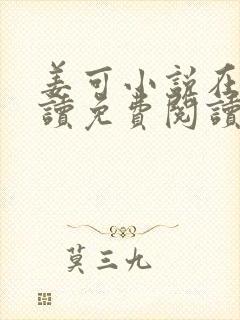 姜可小說在
讀免費閱讀
莫三九